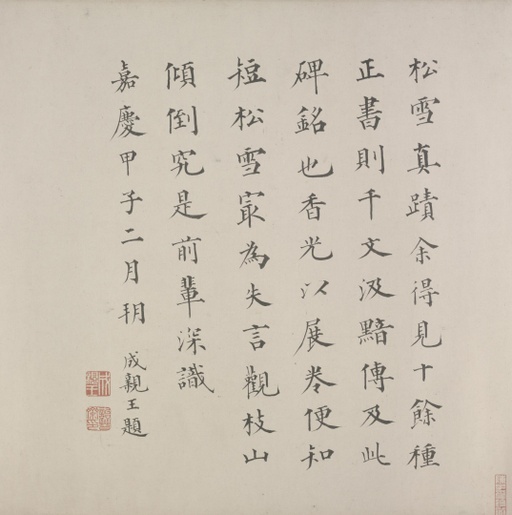 松雪真蹟余得見十餘種
正書則千文汲黯傳及此
碑銘也香光以展卷便知
短松雪寂為失言觀枝山
傾倒究是前輩深識
嘉慶甲子二月玥
成親王題